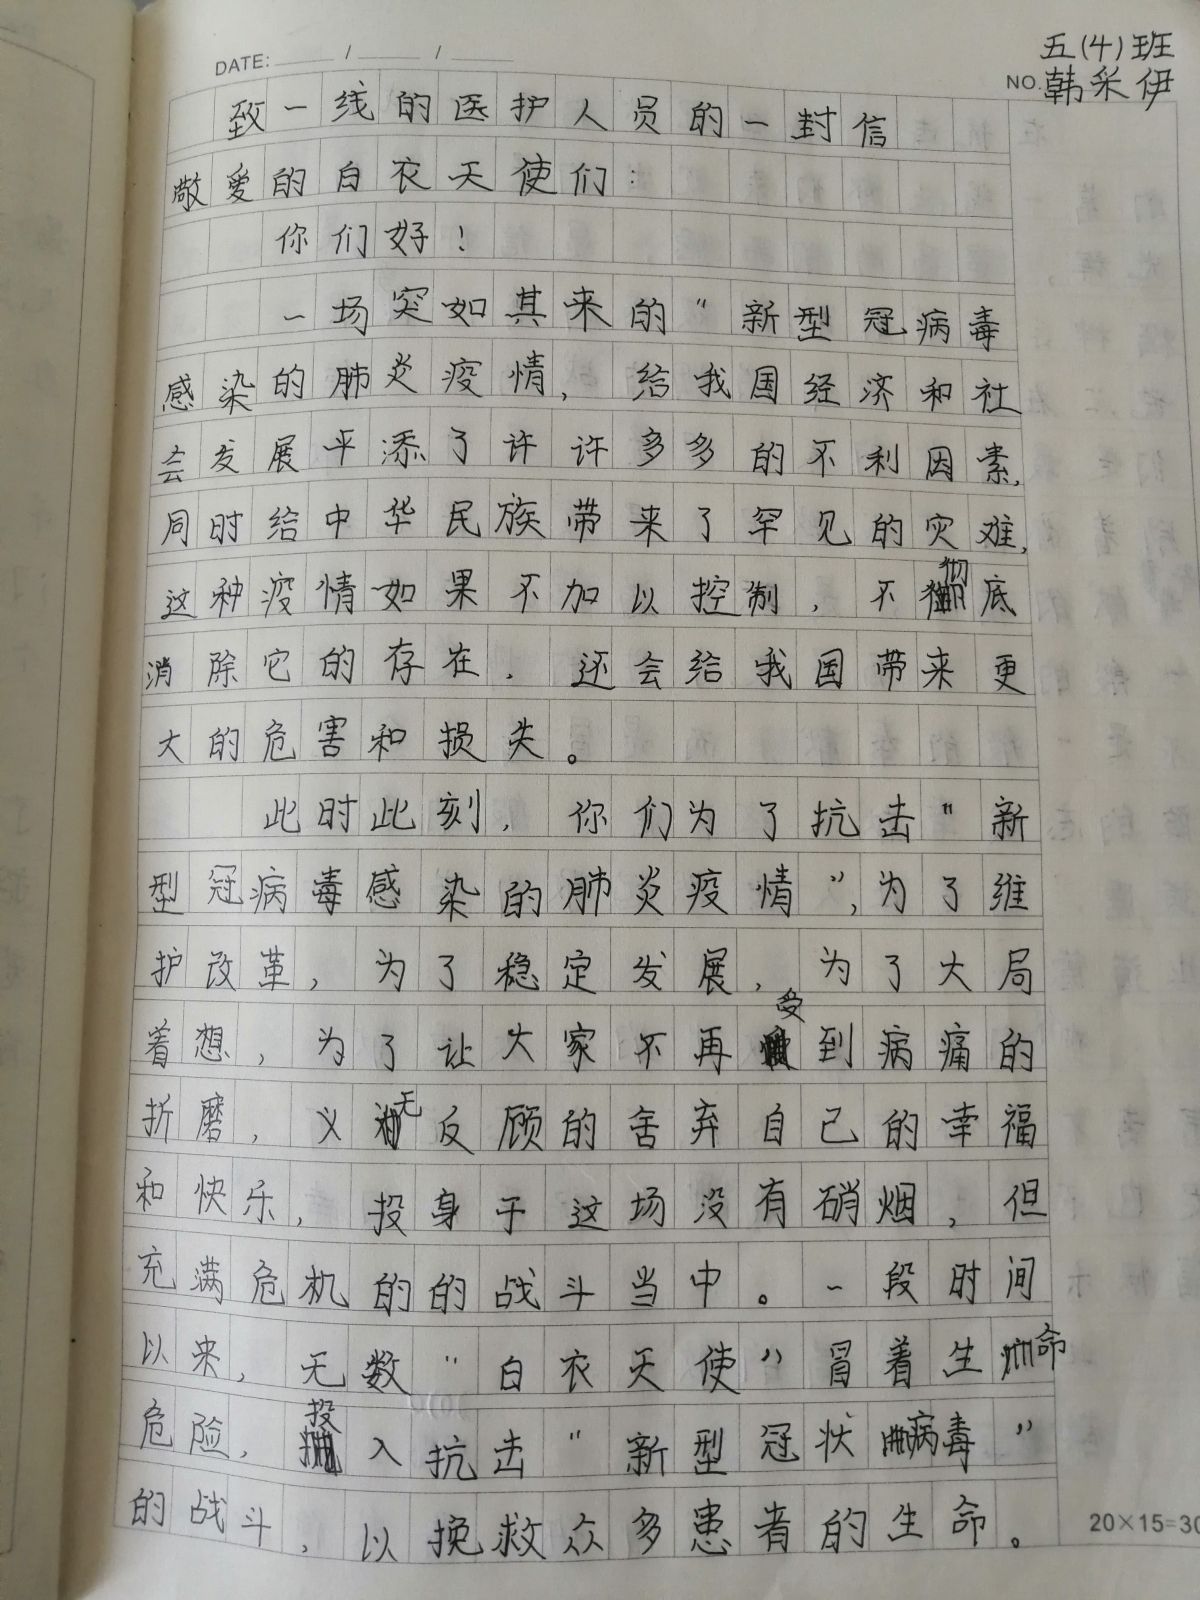 五(4)班
DATE: / /
NO. 韩采伊
致一线的医护人员的一封信
敬爱的白衣天使们:
你们好!
一场突如其来的"新型冠病毒
感染的肺炎疫情,给我国经济和社
会发展平添了许许多多的不利因素,
同时给中华民族带来了罕见的灾难,
这种疫情如果不加以控制,不彻底
消除它的存在,还会给我国带来更
大的危害和损失。
此时此刻,你们为了抗击"新
型冠病毒感染的肺炎疫情",为了维
护改革,为了稳定发展,为了大局
着想,为了让大家不再受到病痛的
折磨,义无反顾的舍弃自己的幸福
和快乐,投身于这场没有硝烟,但
充满危机的的战斗当中。一段时间
以来,无数"白衣天使"冒着生命
危险,投入抗击"新型冠状病毒"
的战斗,以挽救众多患者的生命。
20×15=30